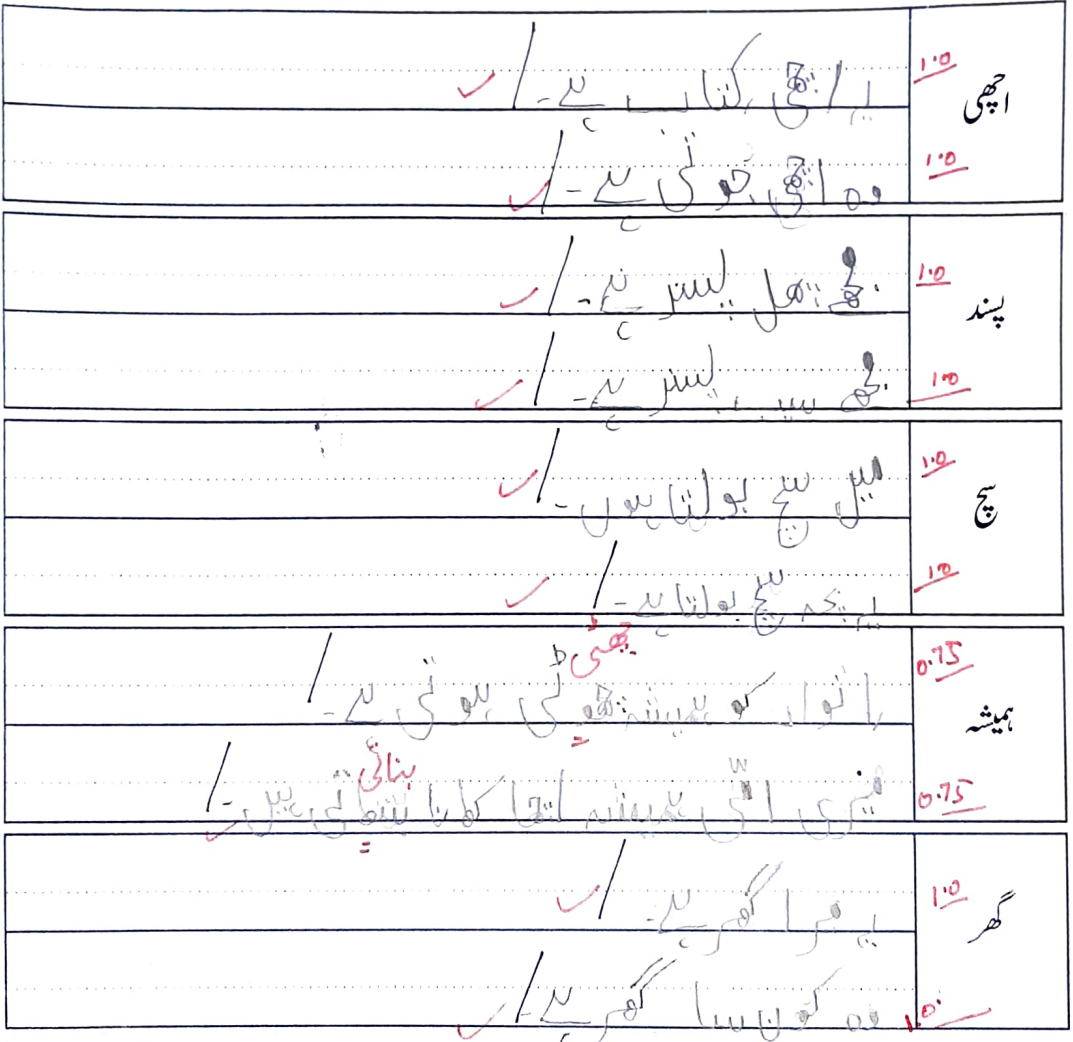 اچھی
1.0
یہ اچھی کتاب ہے۔
1.0
وہ اچھی ہوتی ہے۔
پسند
1.0
مجھے پھل پسند ہے۔
1.0
مجھے سیب پسند ہے۔
سچ
1.0
میں سچ بولتا ہوں۔
1.0
یہ بچہ سچ بولتا ہے۔
چھٹی
ہمیشہ
0.75
اتوار کو ہمیشہ چھوٹی ہوتی ہے۔
بنائی
0.75
میری امّی ہمیشہ اچھا کھانا بناتی ہیں۔
گھر
1.0
یہ مرا گھر ہے۔
1.0
وہ کون سا گھر ہے۔